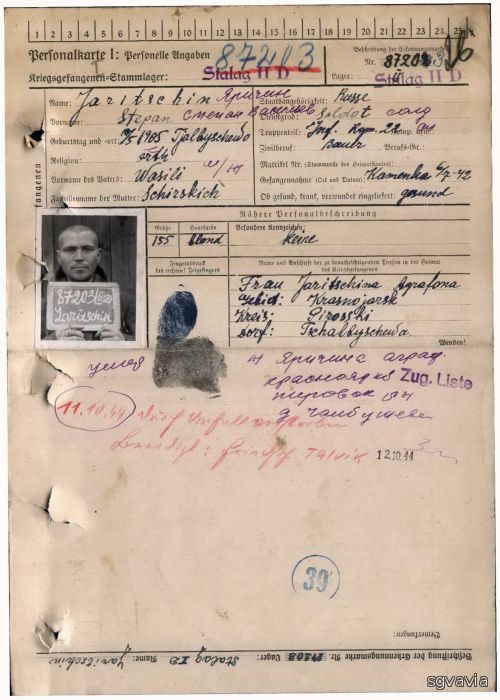 1 2 3 4 5 6 7 8 9 10 11 12 13 14 15 16 17 18 19 20 21 22 23 24 25
Personalkarte I: Personelle Angaben
87203
Beschriftung der Erkennungsmarke
Nr. 87203
Kriegsgefangenen-Stammlager: Stalag II D
Lager: Stalag II D
Name: Jaritschin Яричин
Staatsangehörigkeit: Russe
Vorname: Stepan Степан
Dienstgrad: Soldat
Geburtstag und -ort: 1905 Tjalbyschewo
Truppenteil: Inf. Rgm.
Religion: orth
Zivilberuf: Bauer Berufs-Gr.:
Matrikel Nr. (Stammrolle des Heimatstaates):
Vorname des Vaters: Wasili
Gefangennahme (Ort und Datum): Kamenka 6/7-42
Familienname der Mutter: Schirskich
Ob gesund, krank, verwundet eingeliefert: gesund
Nähere Personalbeschreibung
Größe Haarfarbe Besondere Kennzeichen:
155 blond keine
Fingerabdruck
des rechten! Zeigefingers
Name und Anschrift der zu benachrichtigenden Person in der Heimat
des Kriegsgefangenen
Frau Jaritschina Agrafona
Gebiet: Krasnojarsk
Kreis: Pirosski
Dorf: Tschalbyschewa.
Wenden!
87203 II D
Jaritschin
умер
Яричина аград.
красноярск
Zug. Liste
11.10.44 durch Unfall verstorben
Beerdigt: Friedhof Talvik
12.10.44
39
Bemerkungen:
Beschriftung der Erkennungsmarke Nr. 87203 Lager: Stalag II D Name: Jaritschin
sgvavia